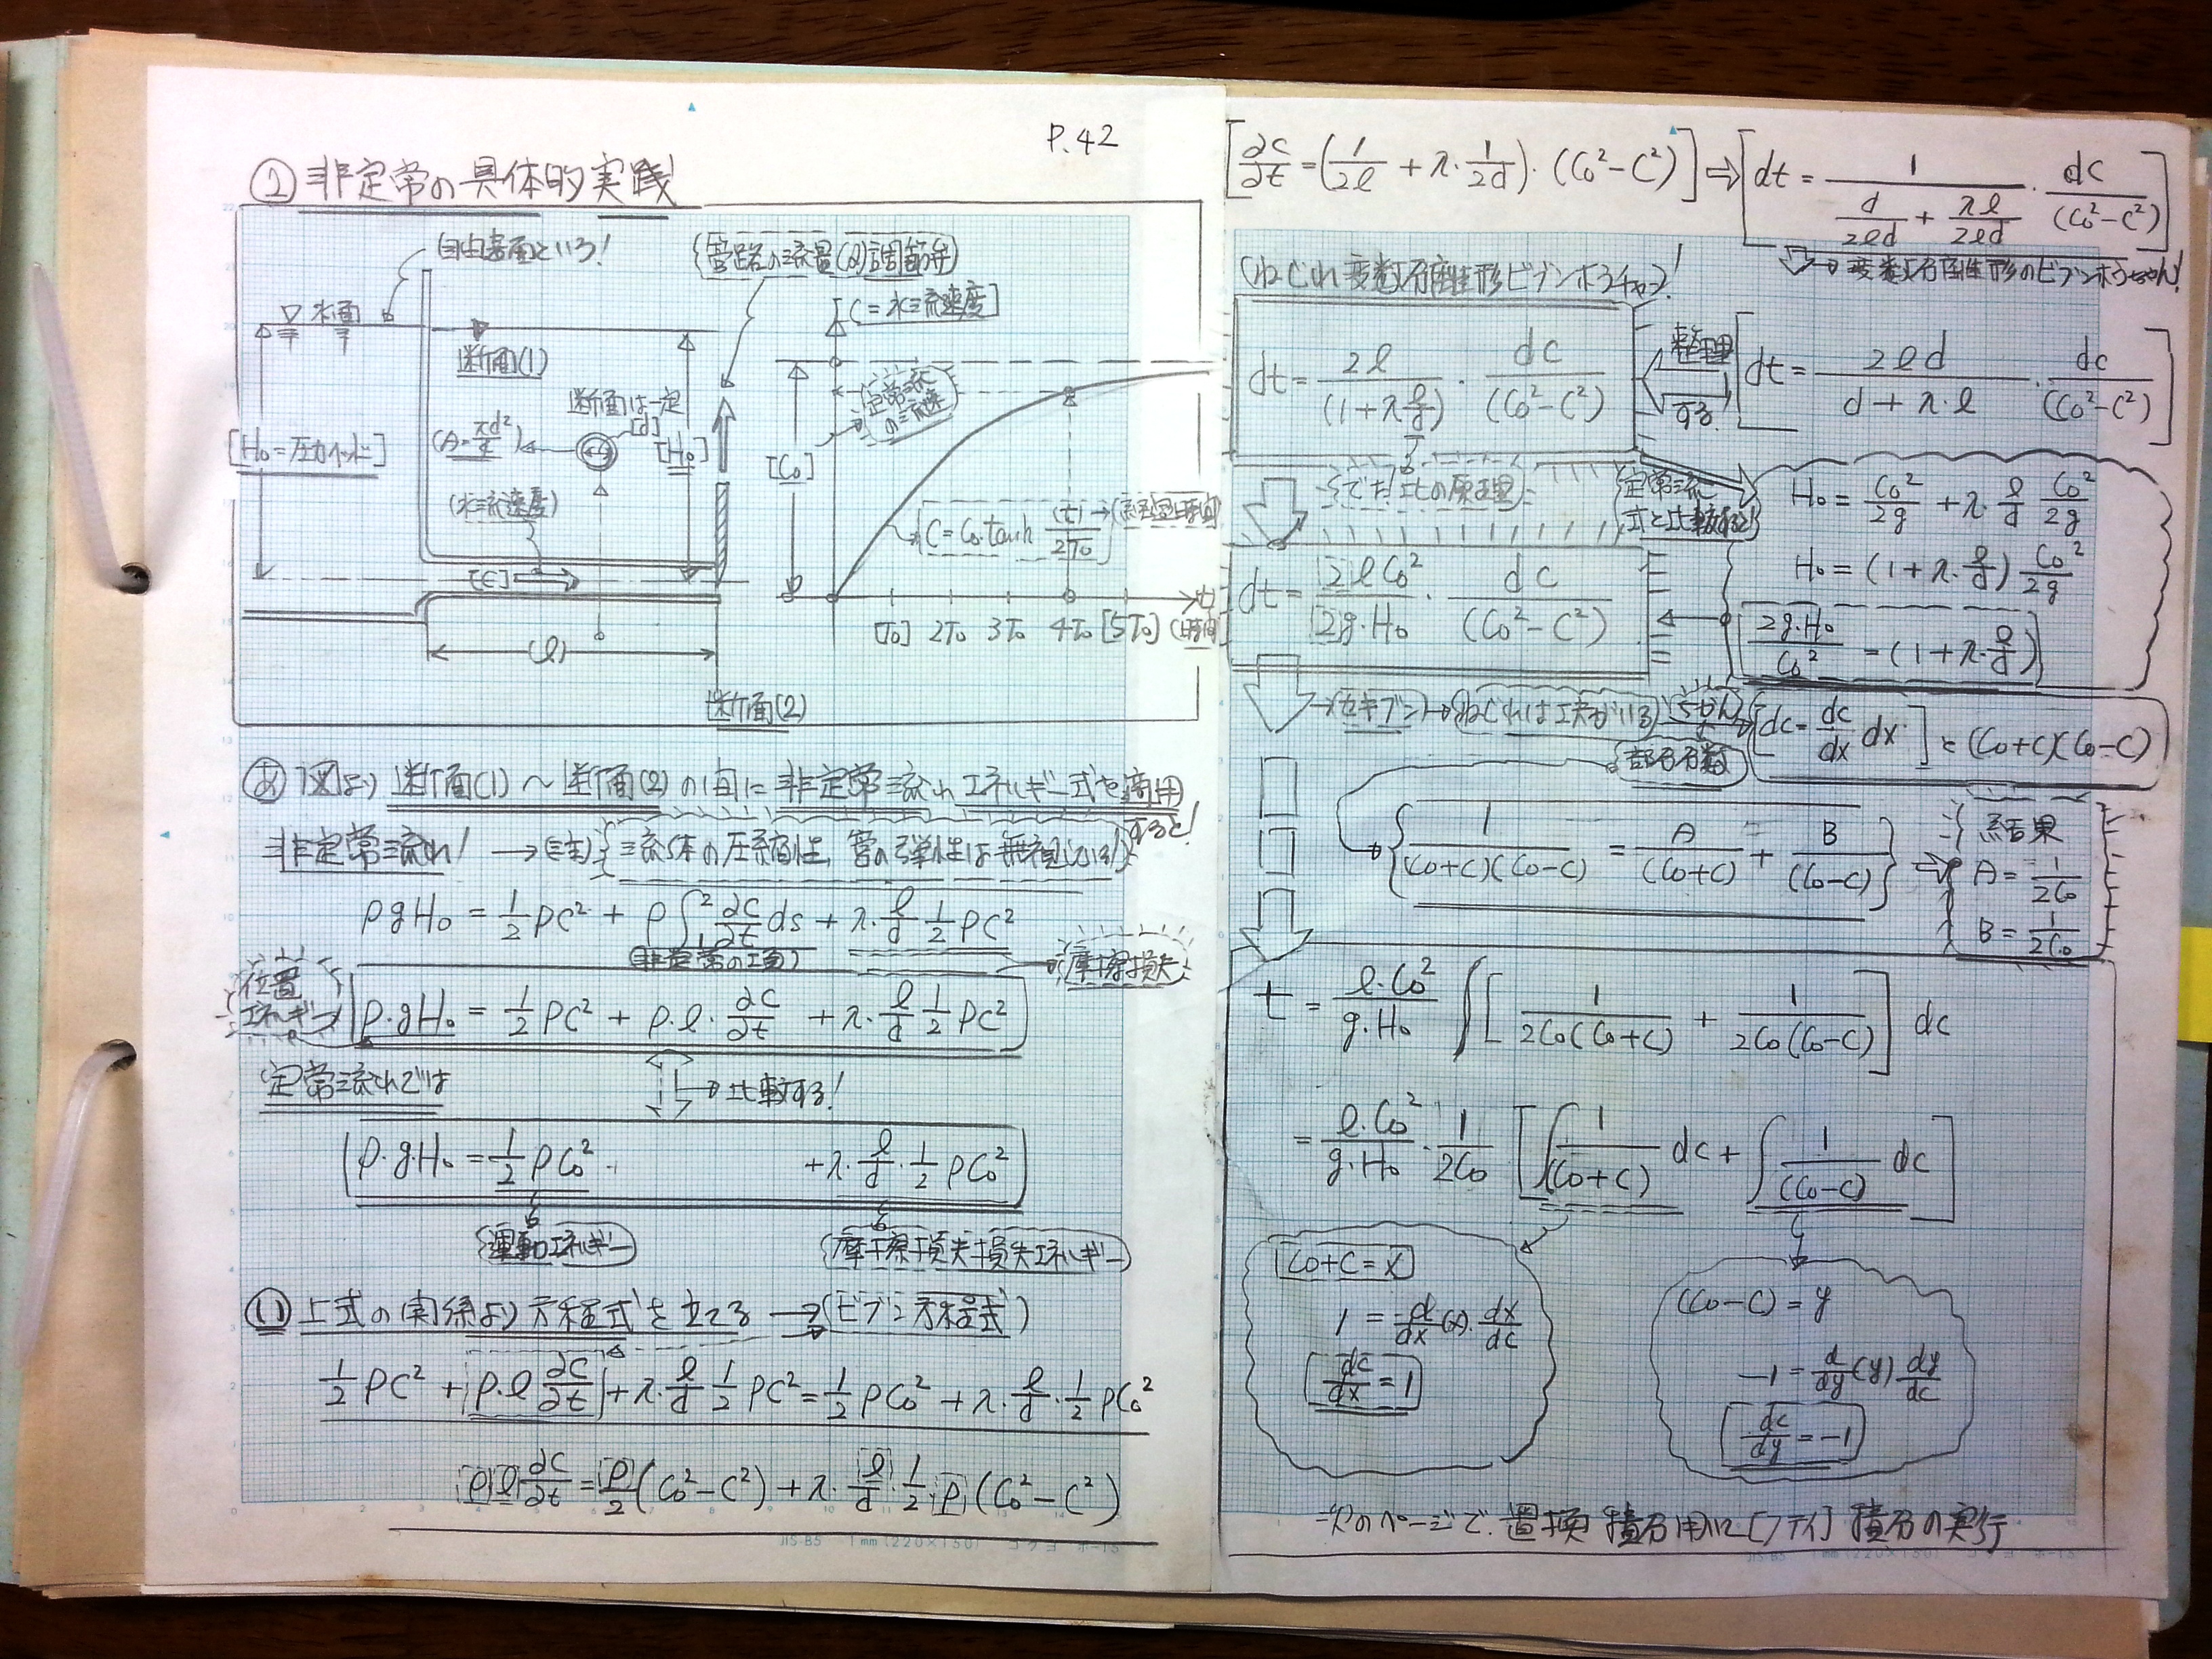 P.42
② 非定常の具体的実践!
自由表面という!
(管路の流量(Q)調節弁)
▽ 水面
[C=水流速度]
断面(1)
断面は一定
[d]
(A=πd²/4)
[H₀=圧力ヘッド]
[H₀]
[C₀]
定常流の流速
(水流速度)
[C]
C=C₀ tanh (t)/2T₀ →(経過時間)
[T₀] 2T₀ 3T₀ 4T₀ [5T₀] (時間)
t
(ℓ)
断面(2)
あ 図より 断面(1)〜断面(2)の間に非定常流れエネルギー式を適用すると!
非定常流れ! →(注){流体の圧縮性, 管の弾性は無視している!}
ρgH₀ = 1/2 ρC² + ρ∫₁² ∂C/∂t ds + λ·ℓ/d 1/2 ρC²
(非定常の項)
摩擦損失
位置エネルギー
ρ·gH₀ = 1/2 ρC² + ρ·ℓ·∂C/∂t + λ·ℓ/d 1/2 ρC²
定常流れでは
→比較する!
ρ·gH₀ = 1/2 ρC₀² + λ·ℓ/d·1/2 ρC₀²
運動エネルギー
摩擦損失損失エネルギー
い 上式の関係より方程式を立てる →(ビブン方程式)
1/2 ρC² + ρ·ℓ ∂C/∂t + λ·ℓ/d 1/2 ρC² = 1/2 ρC₀² + λ·ℓ/d·1/2 ρC₀²
ρℓ ∂C/∂t = ρ/2 (C₀²−C²) + λ·ℓ/d·1/2·ρ(C₀²−C²)
JIS B5 1mm (220×150) コクヨ ホ-15
[∂C/∂t = (1/2ℓ + λ·1/2d)·(C₀²−C²)] ⇒ [dt = 1/(d/2ℓd + λℓ/2ℓd) · dC/(C₀²−C²)]
→変数分離形のビブンホウちゃん!
(ねじれ変数分離形ビブンホウチャン)!
dt = 2ℓ/(1+λℓ/d) · dC/(C₀²−C²)
整理する
[dt = 2ℓd/(d+λ·ℓ) · dC/(C₀²−C²)]
でた!比の原理
定常流式と比較すると!
H₀ = C₀²/2g + λ·ℓ/d C₀²/2g
H₀ = (1+λ·ℓ/d) C₀²/2g
2g·H₀/C₀² = (1+λ·ℓ/d)
dt = 2ℓC₀²/2g·H₀ · dC/(C₀²−C²)
→(セキブン)→(ねじれは工夫がいる)
[dC = dC/dx dx] と (C₀+C)(C₀−C)
部分分数
{1/(C₀+C)(C₀−C) = A/(C₀+C) + B/(C₀−C)} ⇒
結果
A = 1/2C₀
B = 1/2C₀
t = ℓ·C₀²/g·H₀ ∫[1/2C₀(C₀+C) + 1/2C₀(C₀−C)] dC
= ℓ·C₀²/g·H₀ · 1/2C₀ [∫1/(C₀+C) dC + ∫1/(C₀−C) dC]
C₀+C = x
1 = d/dx(x)·dx/dC
dC/dx = 1
(C₀−C) = y
−1 = d/dy(y) dy/dC
dC/dy = −1
次のページで, 置換積分用に 積分の実行